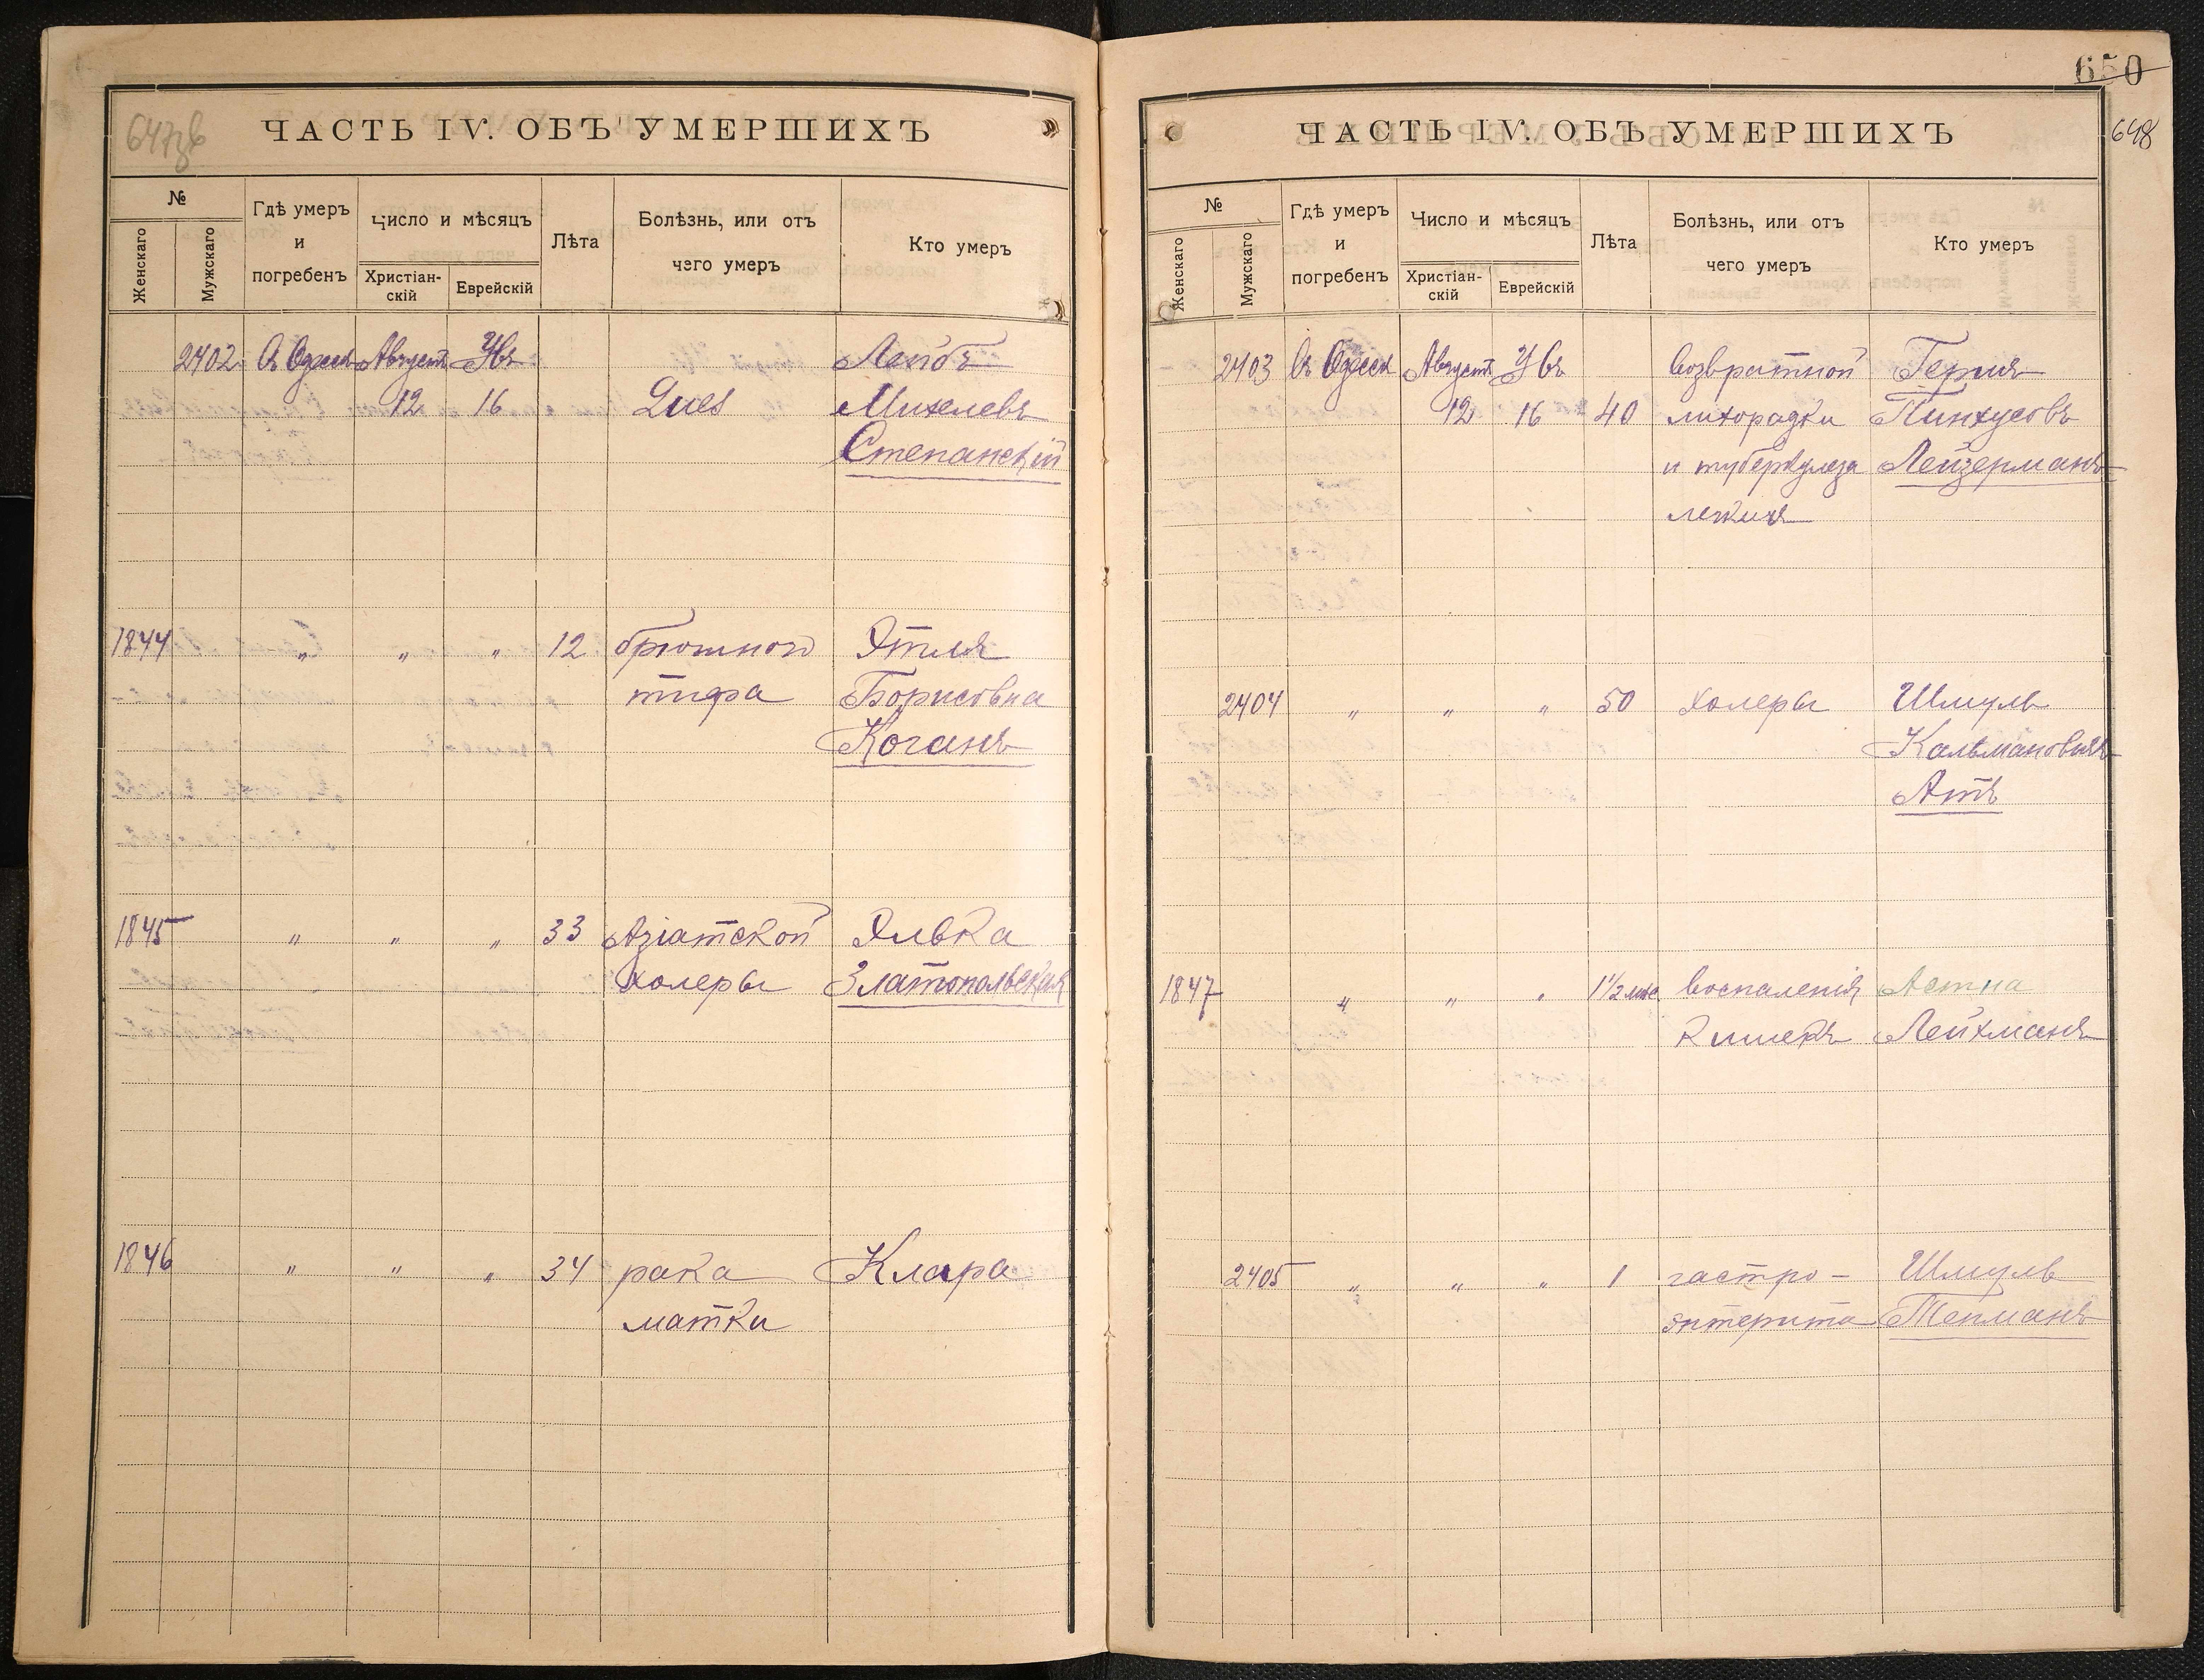 647 об
ЧАСТЬ IV. ОБЪ УМЕРШИХЪ
№
Женскаго
Мужскаго
Гдѣ умеръ
и
погребенъ
Число и мѣсяцъ
Христіан-
скій
Еврейскій
Лѣта
Болѣзнь, или отъ
чего умеръ
Кто умеръ
2402 Въ Одессѣ Августъ Увъ Лейбъ
12 16 Lues Михелевъ
Степанскій
1844 " " " 12 брюшного Этля
тифа Борисовна
Коганъ
1845 " " " 33 Азіатской Элька
холеры Златопольская
1846 " " " 34 рака Клара
матки
650
648
ЧАСТЬ IV. ОБЪ УМЕРШИХЪ
№
Женскаго
Мужскаго
Гдѣ умеръ
и
погребенъ
Число и мѣсяцъ
Христіан-
скій
Еврейскій
Лѣта
Болѣзнь, или отъ
чего умеръ
Кто умеръ
2403 Въ Одессѣ Августъ Увъ возвратной Герш
12 16 40 лихорадки Пинхусовъ
и туберкулеза Лейзерманъ
легкихъ
2404 " " " 50 холеры Шмуль
Кальмановичъ
Атъ
1847 " " " 1½ мѣс воспаленія
кишекъ Лейхманъ
2405 " " " 1 гастро- Шмуль
энтерита Тепманъ